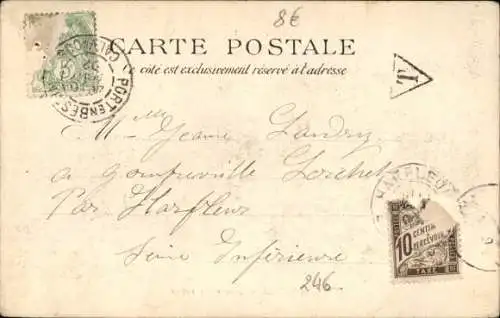 8€
CARTE POSTALE
Ce côté est exclusivement réservé à l'adresse
T
5
PORTENBES
M^lle Jeanne Landry
a Gonfreville
Par Harfleur
Seine Inférieure
246
HARFLEUR
10 CENTIMES
A PERCEVOIR
TAXE